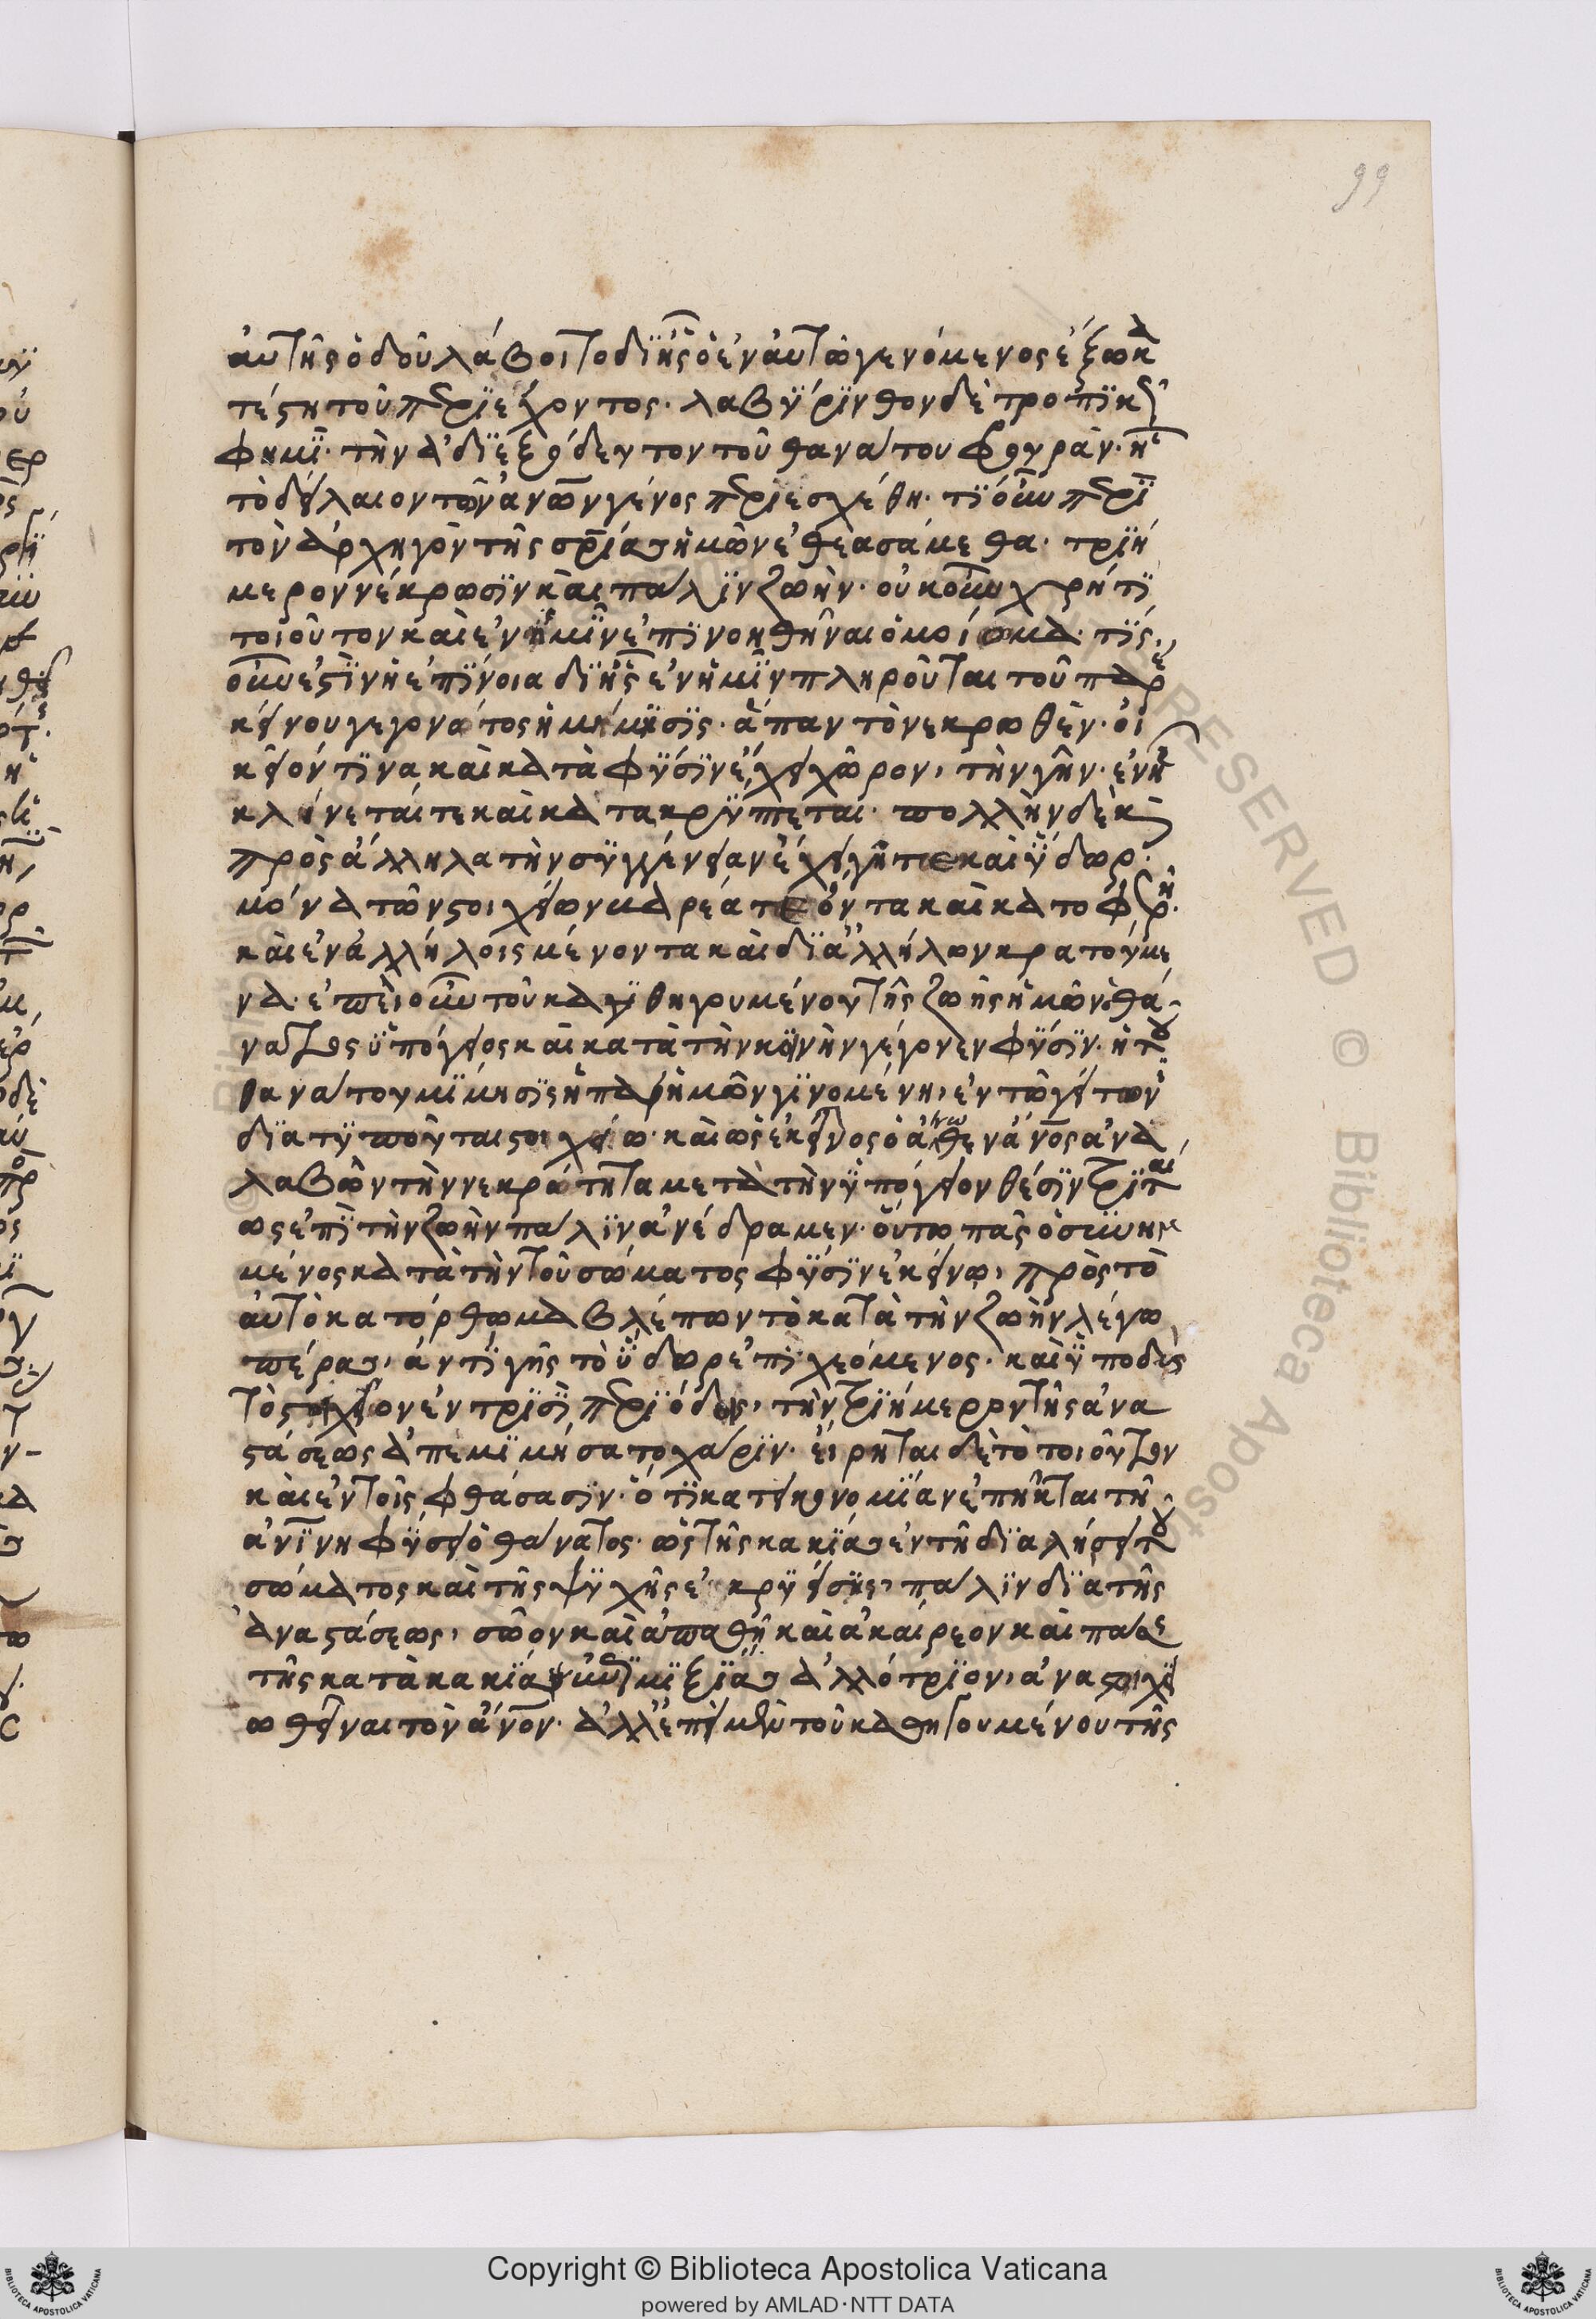 αὐτῆς ὁδοῦ λάβοιτο δϊ ἧς ὁ ἐν αὐτῶ γενόμενος ἔξω κα
τέστη τοῦ περϊέχοντος. λαβϋρϊνθον δὲ τροπϊκῶς
φημῒ τὴν ἀδϊεξόδευτον τοῦ θανάτου φρουράν. ἧ
τὸ δείλαιον τῶν ἀνων γένος περϊεσχέθη. τϊ οὖν περϊ
τὸν ἀρχηγὸν τῆς σρϊας ἡμῶν ἐθεασάμεθα. τρϊή
μερον νέκρωσϊν καὶ πάλϊν ζωὴν. οὐκοῦν χρή τϊ
τοιοῦτον καὶ ἐν ἡμῖν ἐπϊνοηθῆναι ὁμοίωμα. τϊς
οὖν ἐστϊν ἡ ἐπϊνοια δϊ ἧς ἐν ἡμῖν πληροῦται τοῦ παρ ἐ
κείνου γεγονότος ἡ μίμησϊς. ἅπαν τὸ νεκρωθὲν. οἰ
κεῖόν τϊνα καὶ κατὰ φϋσϊν ἔχει χῶρον, τὴν γῆν. ἐν ἧ
κλίνεταί τε καὶ κατακρϋπτεται. πολλὴν δὲ καὶ
πρὸς ἄλληλα τὴν σϋγγένειαν ἔχει γῆ τε καὶ ὕδωρ.
μόνα τῶν στοιχείων βαρέα τε ὄντα καὶ κατοφερῆ.
καὶ ἐν ἀλλήλοις μένοντα καὶ δϊ ἀλλήλων κρατούμε
να. ἐπεὶ οὖν τοῦ καθηγουμένου τῆς ζωῆς ἡμῶν ὁ θά
νατος ὑπόγειος καὶ κατὰ τὴν κοινὴν γέγονεν φϋσϊν. ἡ τοῦ
θανάτου μϊμησϊς ἡ παρ ἡμῶν γϊνομένη, ἐν τῶ γείτωνϊ
δϊατϋποῦται στοιχείω. καὶ ὡς ἐκεῖνος ὁ ἄνωθεν ἄνος ἀνα
λαβὼν τὴν νεκρότητα μετὰ τὴν ϋπόγειον θέσϊν τρϊταί
ως ἐπϊ τὴν ζωὴν πάλϊν ἀνέδραμεν. οὕτω πᾶς ὁ σϋνημ
μένος κατὰ τὴν τοῦ σώματος φϋσϊν ἐκείνω, πρὸς τὸ
αὐτὸ κατόρθωμα βλέπων τὸ κατὰ τὴν ζωὴν λέγω
πέρας, ἀντϊ γῆς τὸ ὕδωρ ἐπϊχεόμενος. καὶ ϋποδὺς
τὸ στοιχεῖον ἐν τρϊσϊ περϊόδοις, τὴν τρϊήμερον τῆς ἀνα
στάσεως ἀπεμϊμήσατο χάρϊν. εἴρηται δὲ τὸ τοιοῦτον
καὶ ἐν τοῖς φθάσασϊν. ὅτϊ κατ οἰκονομϊαν ἐπῆκται τῆ
ἀνϊνη φϋσει ὁ θάνατος. ὡς τῆς κακϊας ἐν τῆ δϊαλήσει τοῦ
σώματος καὶ τῆς ψϋχῆς ἐκρϋείσης, πάλϊν δϊα τῆς
ἀναστάσεως, σῶον καὶ ἀπαθῆ καὶ ἀκαίρεον καὶ πάσης
τῆς κατὰ κακϊαν ἐπϊμϊξϊας ἀλλότρϊον, ἀναστοιχει
ωθεῖναι τὸν ἄνον. ἀλλ ἐπεὶ μὲν τοῦ καθηγουμένου τῆς
99
Copyright © Biblioteca Apostolica Vaticana
powered by AMLAD·NTT DATA